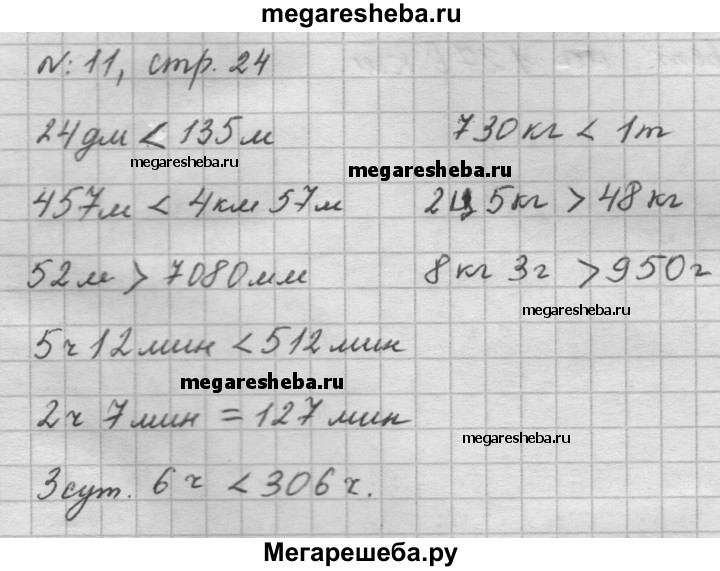 megaresheba.ru
№: 11, стр. 24
24дм < 135м 730кг < 1т
megaresheba.ru megaresheba.ru
457м < 4км 57м 2ц 5кг > 48кг
52м > 7080мм 8кг 3г > 950г
megaresheba.ru
5ч 12мин < 512мин
megaresheba.ru
2ч 7мин = 127мин
megaresheba.ru
3сут. 6ч < 306ч.
Мегарешеба.ру